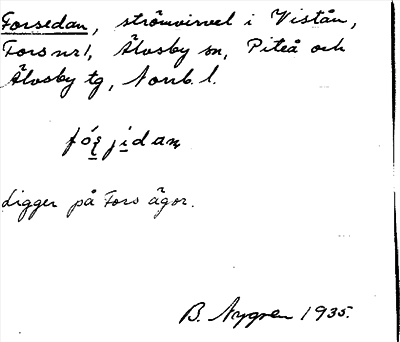 Forsedan, strömvirvel i Vistån,
Fors nr 1, Älvsby sn, Piteå och
Älvsby tg, Norrb. l.
ligger på Fors ägor.
B. Nygren 1935.